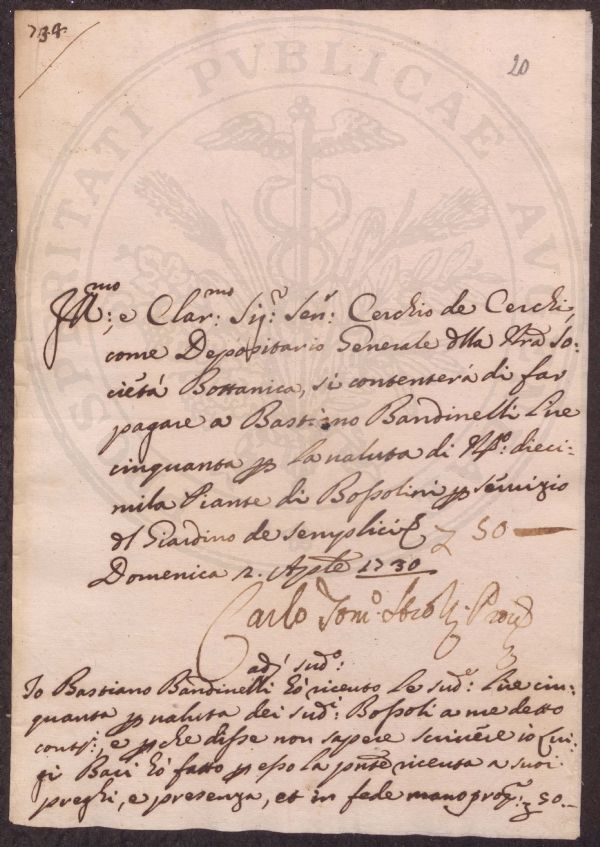 734.
20
Ill:mo, e Clar:mo Sig:re Sen:r Cerchio de Cerchi,
come Depositario Generale dlla Nra So:
cietá Bottanica, si contenterá di far
pagare a Bastiano Bandinelli Lire
cinquanta p la valuta di N:o dieci-
mila Piante di Bossolini p servizio
dl Giardino de semplici £ 50
Domenica 2. Aple 1730
Carlo Tom:o Strozzi Proc
adi sud:o:
Io Bastiano Bandinelli hó ricevto le sud:e Lire cin:
quanta p valuta dei sud:i Bossoli a me detto
cont:i, e pche disse non sapere scrivere io Lui-
gi Baci hó fatto p esso la pnte ricevuta a suoi
preghi, e presenza, et in fede mano prop:a £ 50.-
SPERITATI PVBLICAE AV